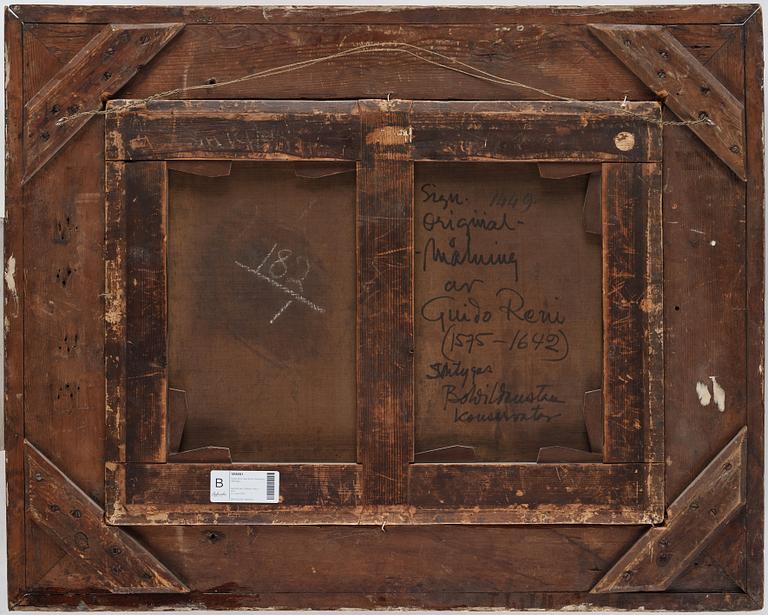 182
Sign. 1449.
Original-
-Målning
av
Guido Reni
(1575-1642)
Intygas
Konservator
B